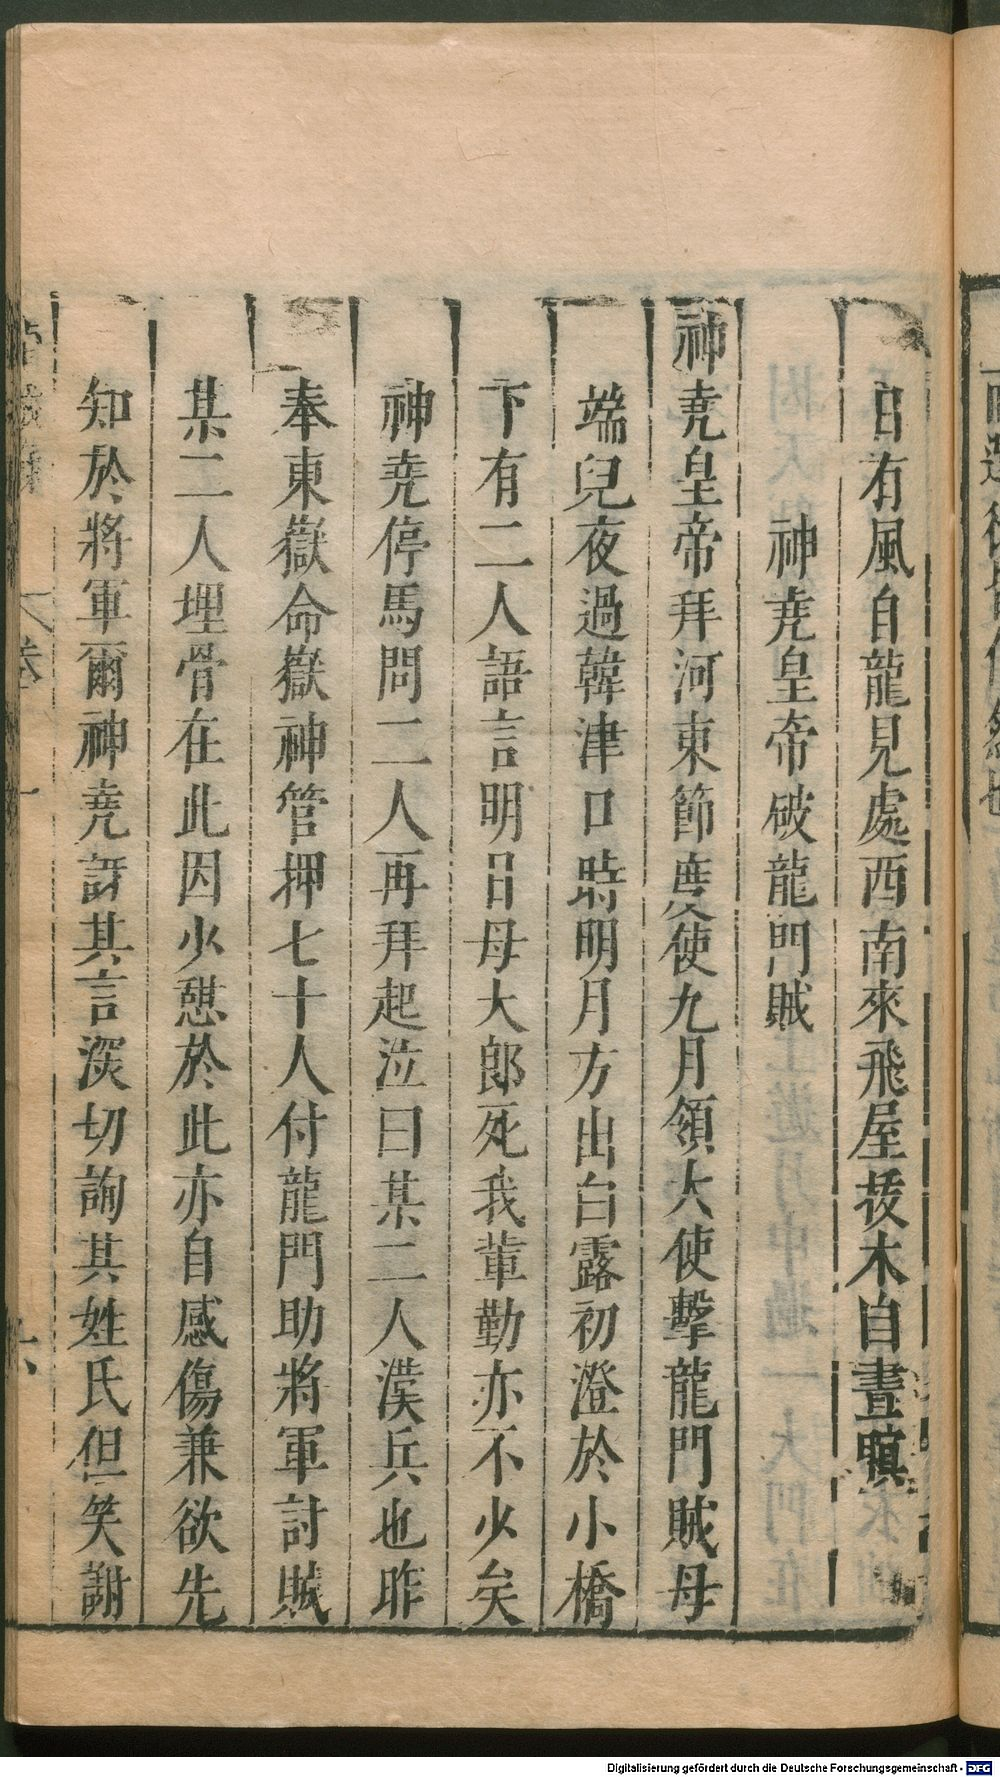 日有風自龍見處西南來飛屋拔木白晝暝
神堯皇帝破龍門賊
神堯皇帝拜河東節度使九月領大使擊龍門賊母
端兒夜過韓津口時明月方出白露初澄於小橋
下有二人語言明日母大郎死我輩勤亦不少矣
神堯停馬問二人再拜起泣曰某二人漢兵也昨
奉東嶽命嶽神管押七十人付龍門助將軍討賊
某二人埋骨在此因少憩於此亦自感傷兼欲先
知於將軍爾神堯訝其言深切詢其姓氏但笑謝
卷一
六
Digitalisierung gefördert durch die Deutsche Forschungsgemeinschaft - DFG